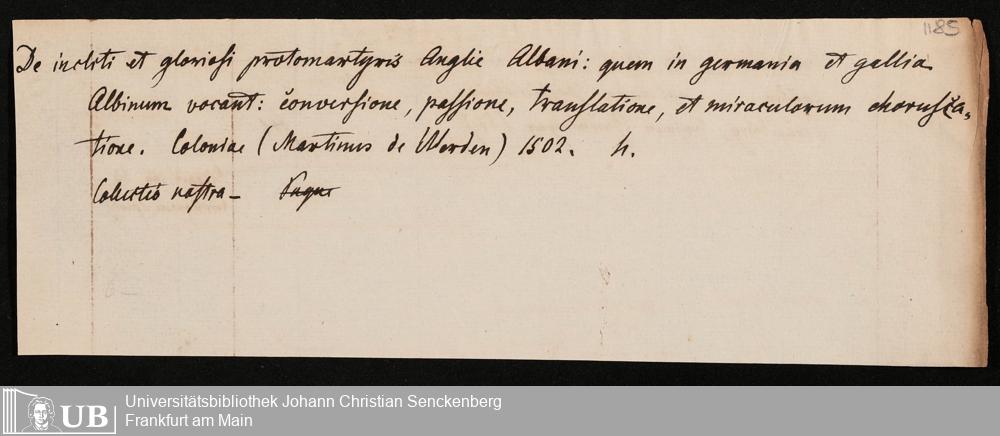 1185
De incliti et gloriosi protomartyris Anglie Albani: quem in germania et gallia
Albinum vocant: conversione, passione, translatione, et miraculorum chorusca-
tione. Coloniae (Martinus de Werden) 1502. h.
Collectio nostra –
UB
Universitätsbibliothek Johann Christian Senckenberg
Frankfurt am Main